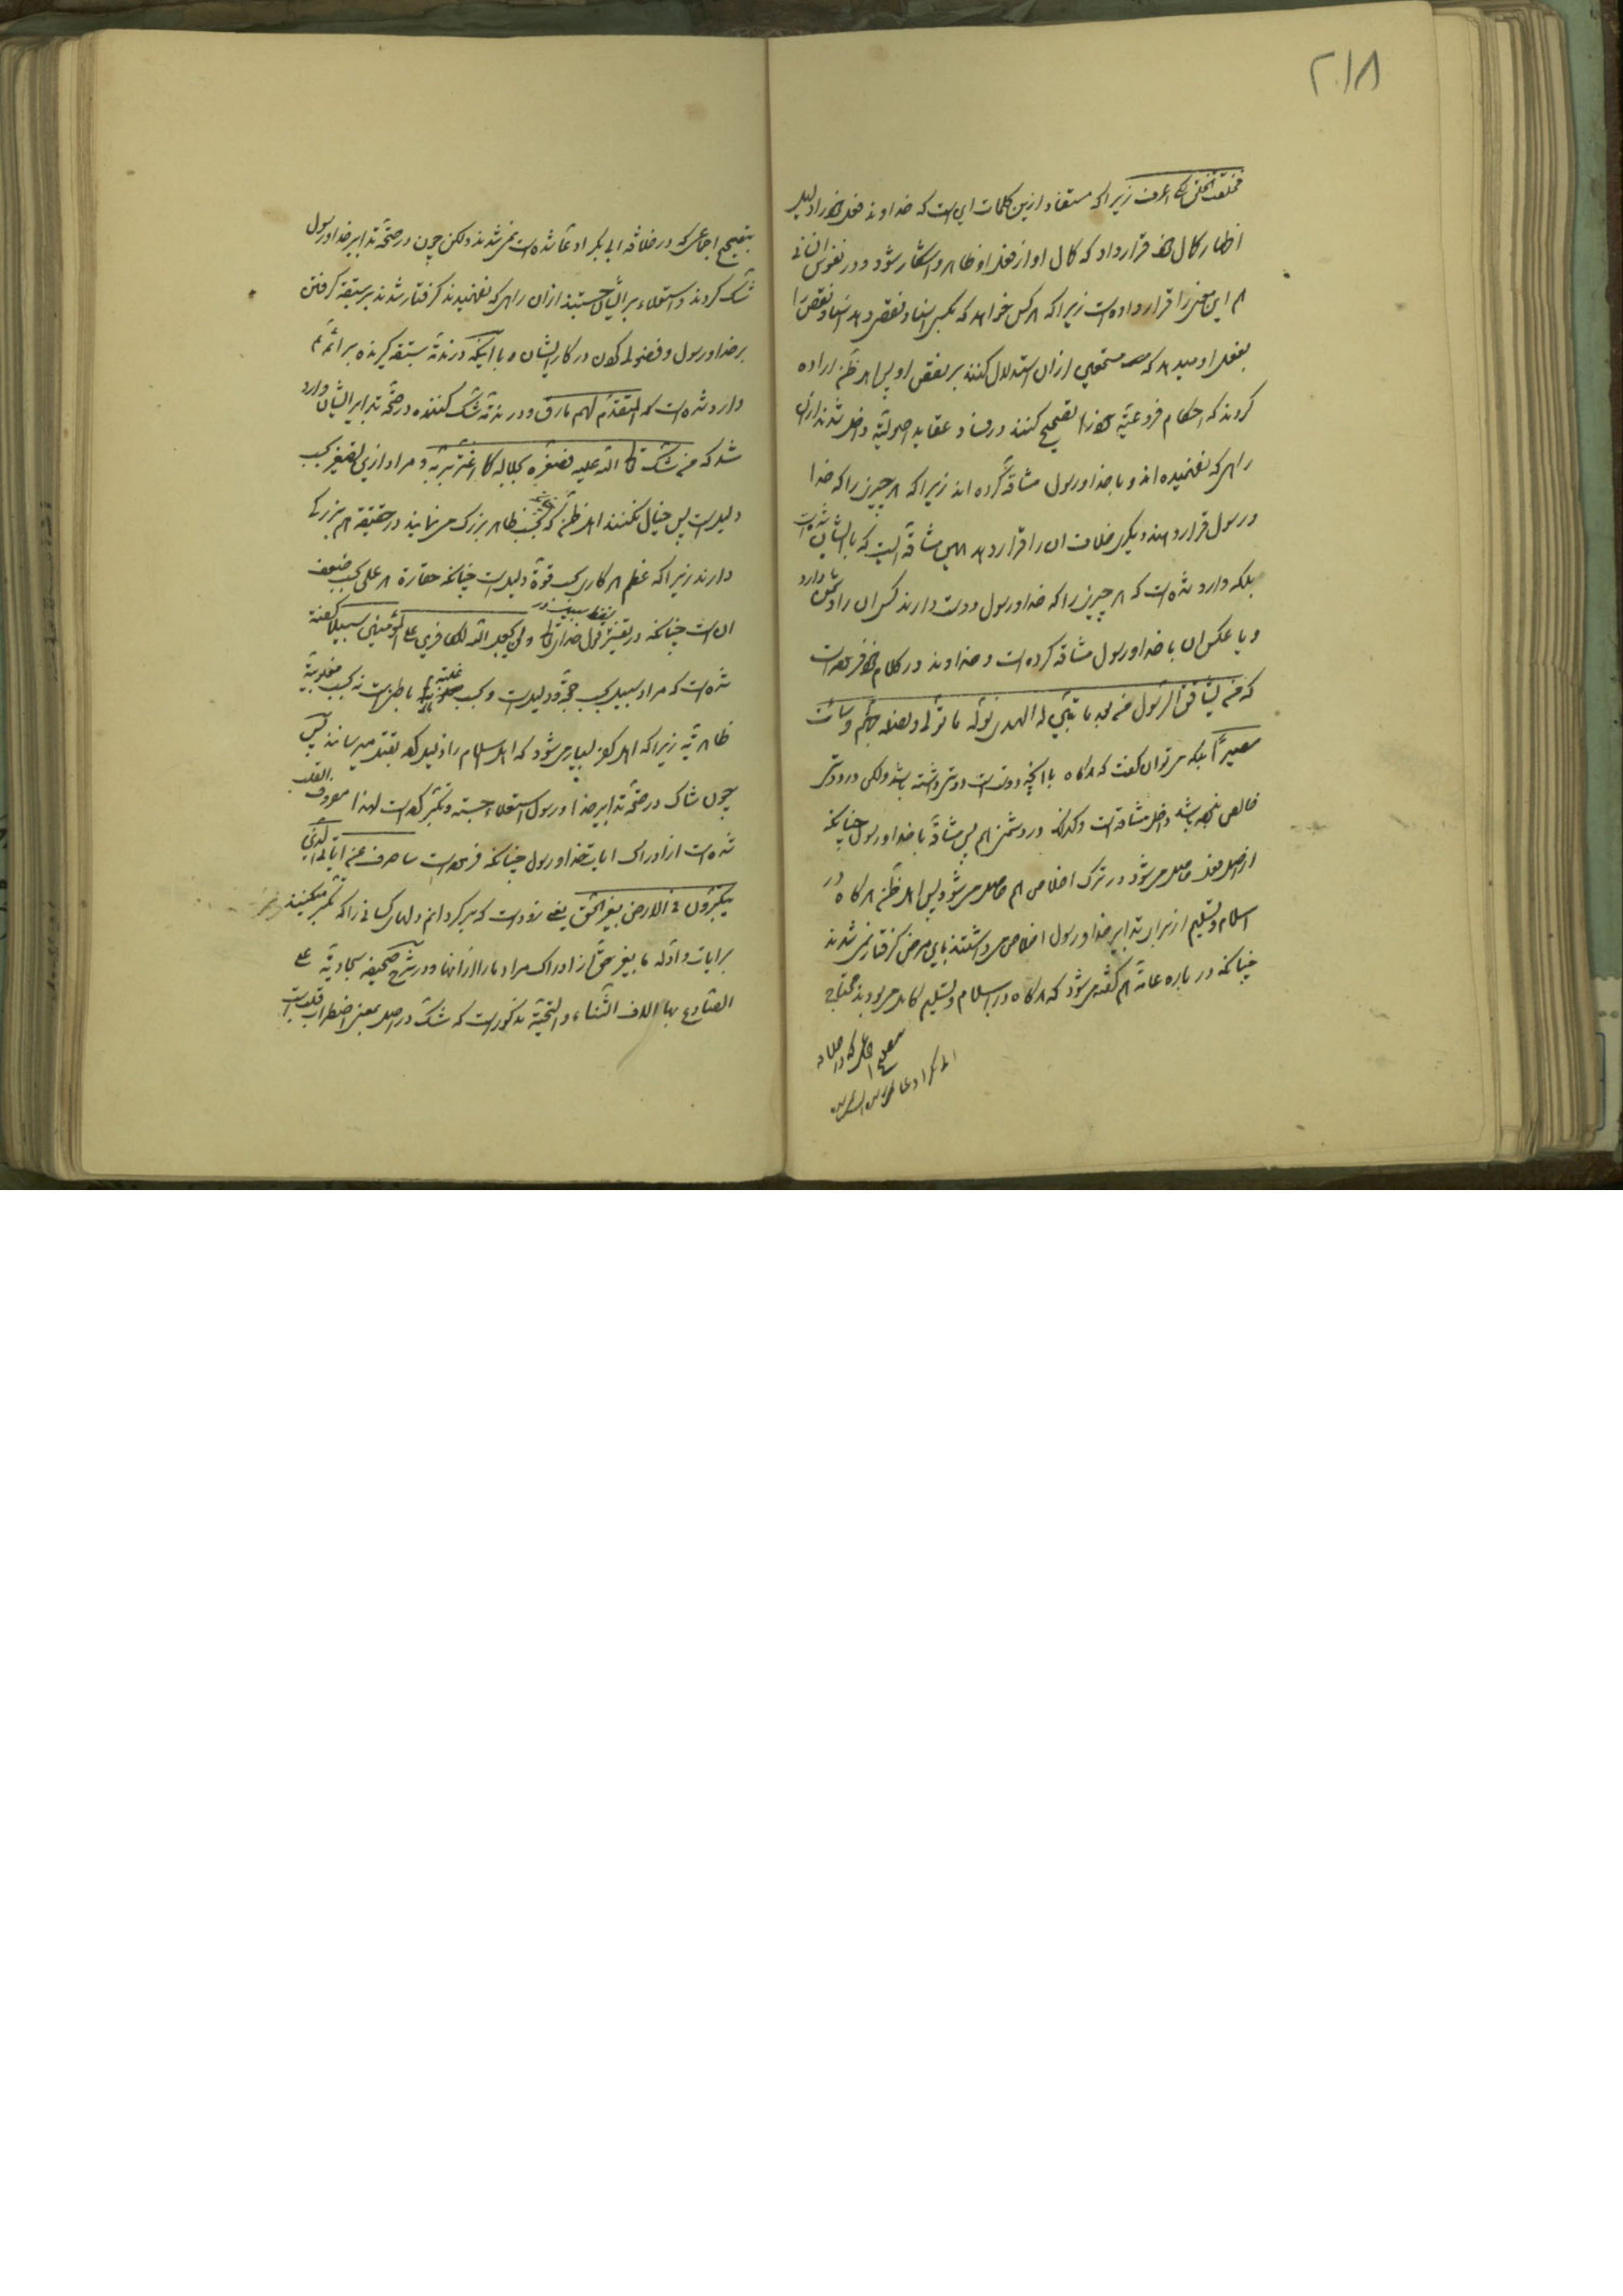 ۲۱۸
فخلقت الخلق لکی اعرف زیرا که مستفاد ازین کلمات این است که خداوند فعل خود را دلیل
اظهار کمال خود قرار داد که کمال او از فعل او ظاهر و اشکار شود و در نفوس انسانی
هم این معنی را قرار داده است زیرا که هر کس خواهد که بکسی اسناد نقص دهد اسناد نقص را
بفعل او میدهد که مستمعین ازان استدلال کنند بر نقص او پس اهل ظن اراده
کردند که احکام فروعیّه خود را تصحیح کنند در فساد عقاید اصولیّه داخل شدند ازان
راهی که نفهمیده اند و با خدا و رسول مشاقّه کرده اند زیرا که هر چیزی را که خدا
و رسول قرار دهند و دیگری خلاف ان را قرار دهد همین مشاقّه است که با ایشان شده است
بلکه وارد شده است که هر چیزی را که خدا و رسول دوست دارند کسی ان را دشمن دارد
و یا عکس ان با خدا و رسول مشاقه کرده است و خداوند در کلام خود فرموده است
که من یشاقق الرّسول من بعد ما تبیّن له الهدی نولّه ما تولّی و نصله جهنّم و سائت
مصیراً بلکه می توان گفت که هرگاه با انچه دوست است دوستی داشته باشد ولکن در دوستی
خالص نبوده باشد داخل مشاقه است و کذلک در دشمنی هم پس مشاقّه با خدا و رسول چنانکه
از اصل فعل حاصل می شود در ترک اخلاص هم حاصل می شود پس اهل ظن هرگاه در
اسلام و تسلیم از برای تدابیر خدا و رسول اخلاص می داشتند باین مرض گرفتار نمی شدند
چنانکه در باره عامّه هم گفته می شود که هرگاه در اسلام و تسلیم کامل می بودند محتاج
بتصحیح اجماعی که در خلافه ابی بکر ادعا شده است نمی شدند ولکن چون در صحّة تدابیر خدا و رسول
شک کردند و استعلاء بر ایشان جستند ازان راهی که نفهمیدند گرفتار شدند بر سبقة گرفتن
بر خدا و رسول و فضولی کردن در کار ایشان و با اینکه در مذمّة سبقه گیرنده بر ائمّه
وارد شده است که المتقدّم لهم مارق و در مذمّة شک کننده در صحّة تدابیر ایشان وارد
شد که من شک قال الله علیه فصغّره بجلاله کما اغترّ بربّه و مراد ازین تصغیر بحسب
دلیل است پس خیال نکنند اهل ظن که بحسب ظاهر بزرگ می نمایند در حقیقة هم بزرگی
دارند زیرا که عظم هر کاری بحسب قوّة دلیل است چنانکه حقارة هر عملی بحسب ضعف
ان است چنانکه در تفسیر قول خدای تعالی و لن یجعل الله للکافرین علی المؤمنین سبیلا گفته
شده است که مراد سبیل بحسب حجّة و دلیل است و بحسب غلبة باطن است نه بحسب مغلوبیّة
ظاهریّه زیرا که اهل کفر بسیار می شود که اهل اسلام را ذلیل کرده بقتل میرسانند پس
چون شاک در صحّة تدابیر خدا و رسول استعلاء جسته و تکبّر کرده است لهذا مصروف القلب
شده است از ادراک ایات خدا و رسول چنانکه فرموده است ساصرف عن ایاتی الّذین
یتکبّرون فی الارض بغیر الحقّ یعنی زود است که برگردانم دلهای کسانی را که تکبّر میکنند
بر ایات و ادلّه ما بغیر حقّ از ادراک مراد ما از انها و در شرح صحیفه سجادیّة علی
الصّادع بها الاف الثّناء و التّحیّة مذکور است که شک در اصل بمعنی اضطراب قلب است